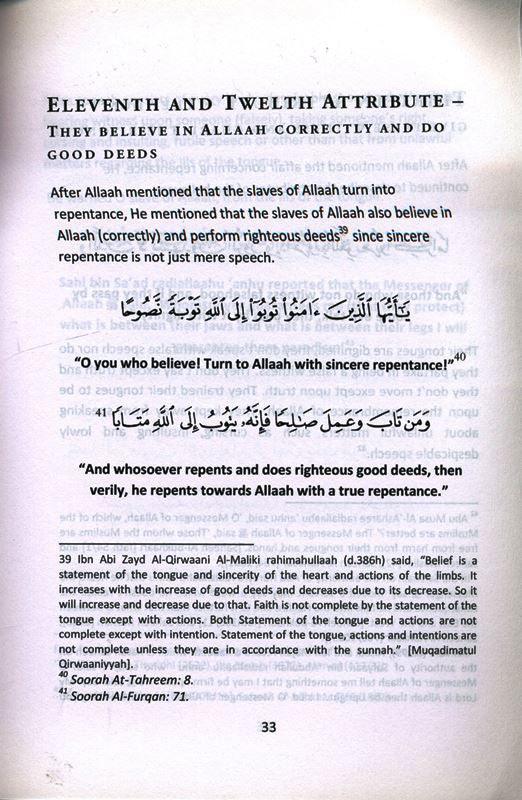 ELEVENTH AND TWELTH ATTRIBUTE –
THEY BELIEVE IN ALLAAH CORRECTLY AND DO
GOOD DEEDS
After Allaah mentioned that the slaves of Allaah turn into
repentance, He mentioned that the slaves of Allaah also believe in
Allaah (correctly) and perform righteous deeds39 since sincere
repentance is not just mere speech.
يَـٰٓأَيُّهَا ٱلَّذِينَ ءَامَنُوا۟ تُوبُوٓا۟ إِلَى ٱللَّهِ تَوْبَةً نَّصُوحًا
“O you who believe! Turn to Allaah with sincere repentance!”40
وَمَن تَابَ وَعَمِلَ صَـٰلِحًا فَإِنَّهُۥ يَتُوبُ إِلَى ٱللَّهِ مَتَابًا 41
“And whosoever repents and does righteous good deeds, then
verily, he repents towards Allaah with a true repentance.”
39 Ibn Abi Zayd Al-Qirwaani Al-Maliki rahimahullaah (d.386h) said, “Belief is a
statement of the tongue and sincerity of the heart and actions of the limbs. It
increases with the increase of good deeds and decreases due to its decrease. So it
will increase and decrease due to that. Faith is not complete by the statement of the
tongue except with actions. Both Statement of the tongue and actions are not
complete except with intention. Statement of the tongue, actions and intentions are
not complete unless they are in accordance with the sunnah.” [Muqadimatul
Qirwaaniyyah].
40 Soorah At-Tahreem: 8.
41 Soorah Al-Furqan: 71.
33